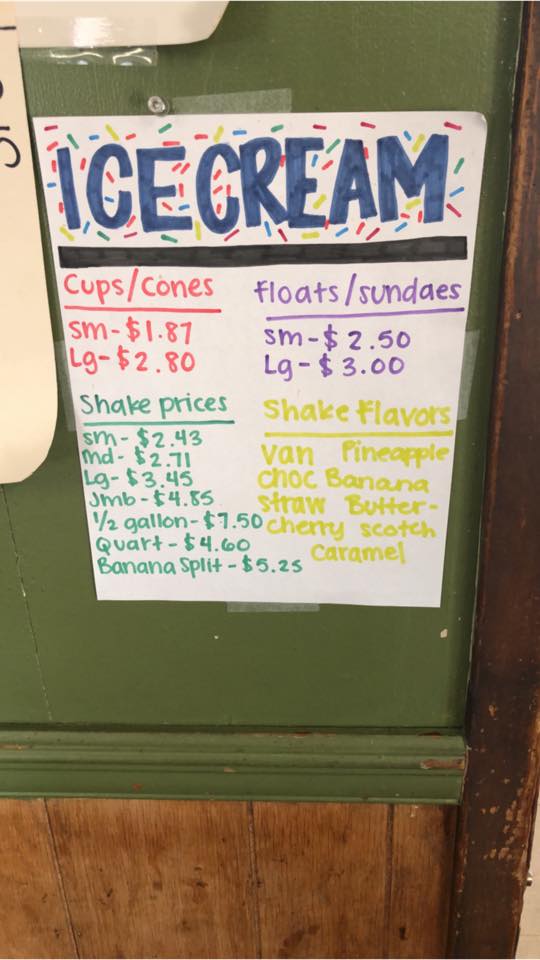 ICE CREAM
Cups/Cones
sm-$1.87
Lg-$2.80
floats/sundaes
sm-$2.50
Lg-$3.00
Shake prices
sm-$2.43
md-$2.71
Lg-$3.45
Jmb-$4.85
1/2 gallon-$7.50
Quart-$4.60
Banana Split-$5.25
Shake flavors
van Pineapple
choc Banana
straw Butter-
cherry scotch
caramel